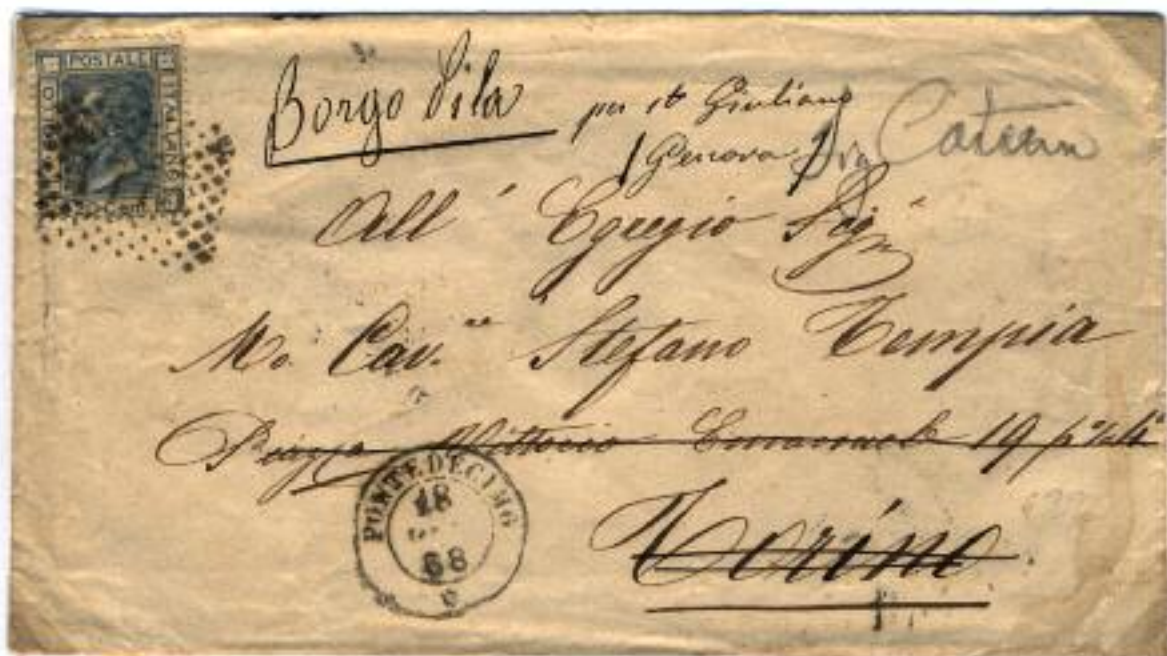 POSTALE
ITALIANO
Borgo Pila per St Giuliano
(Genova) Caterina
All' Egregio Sigr
Mo. Cavre Stefano Tempia
Piazza Vittorio Emanuele 19
PONTEDECIMO
18
68
Torino